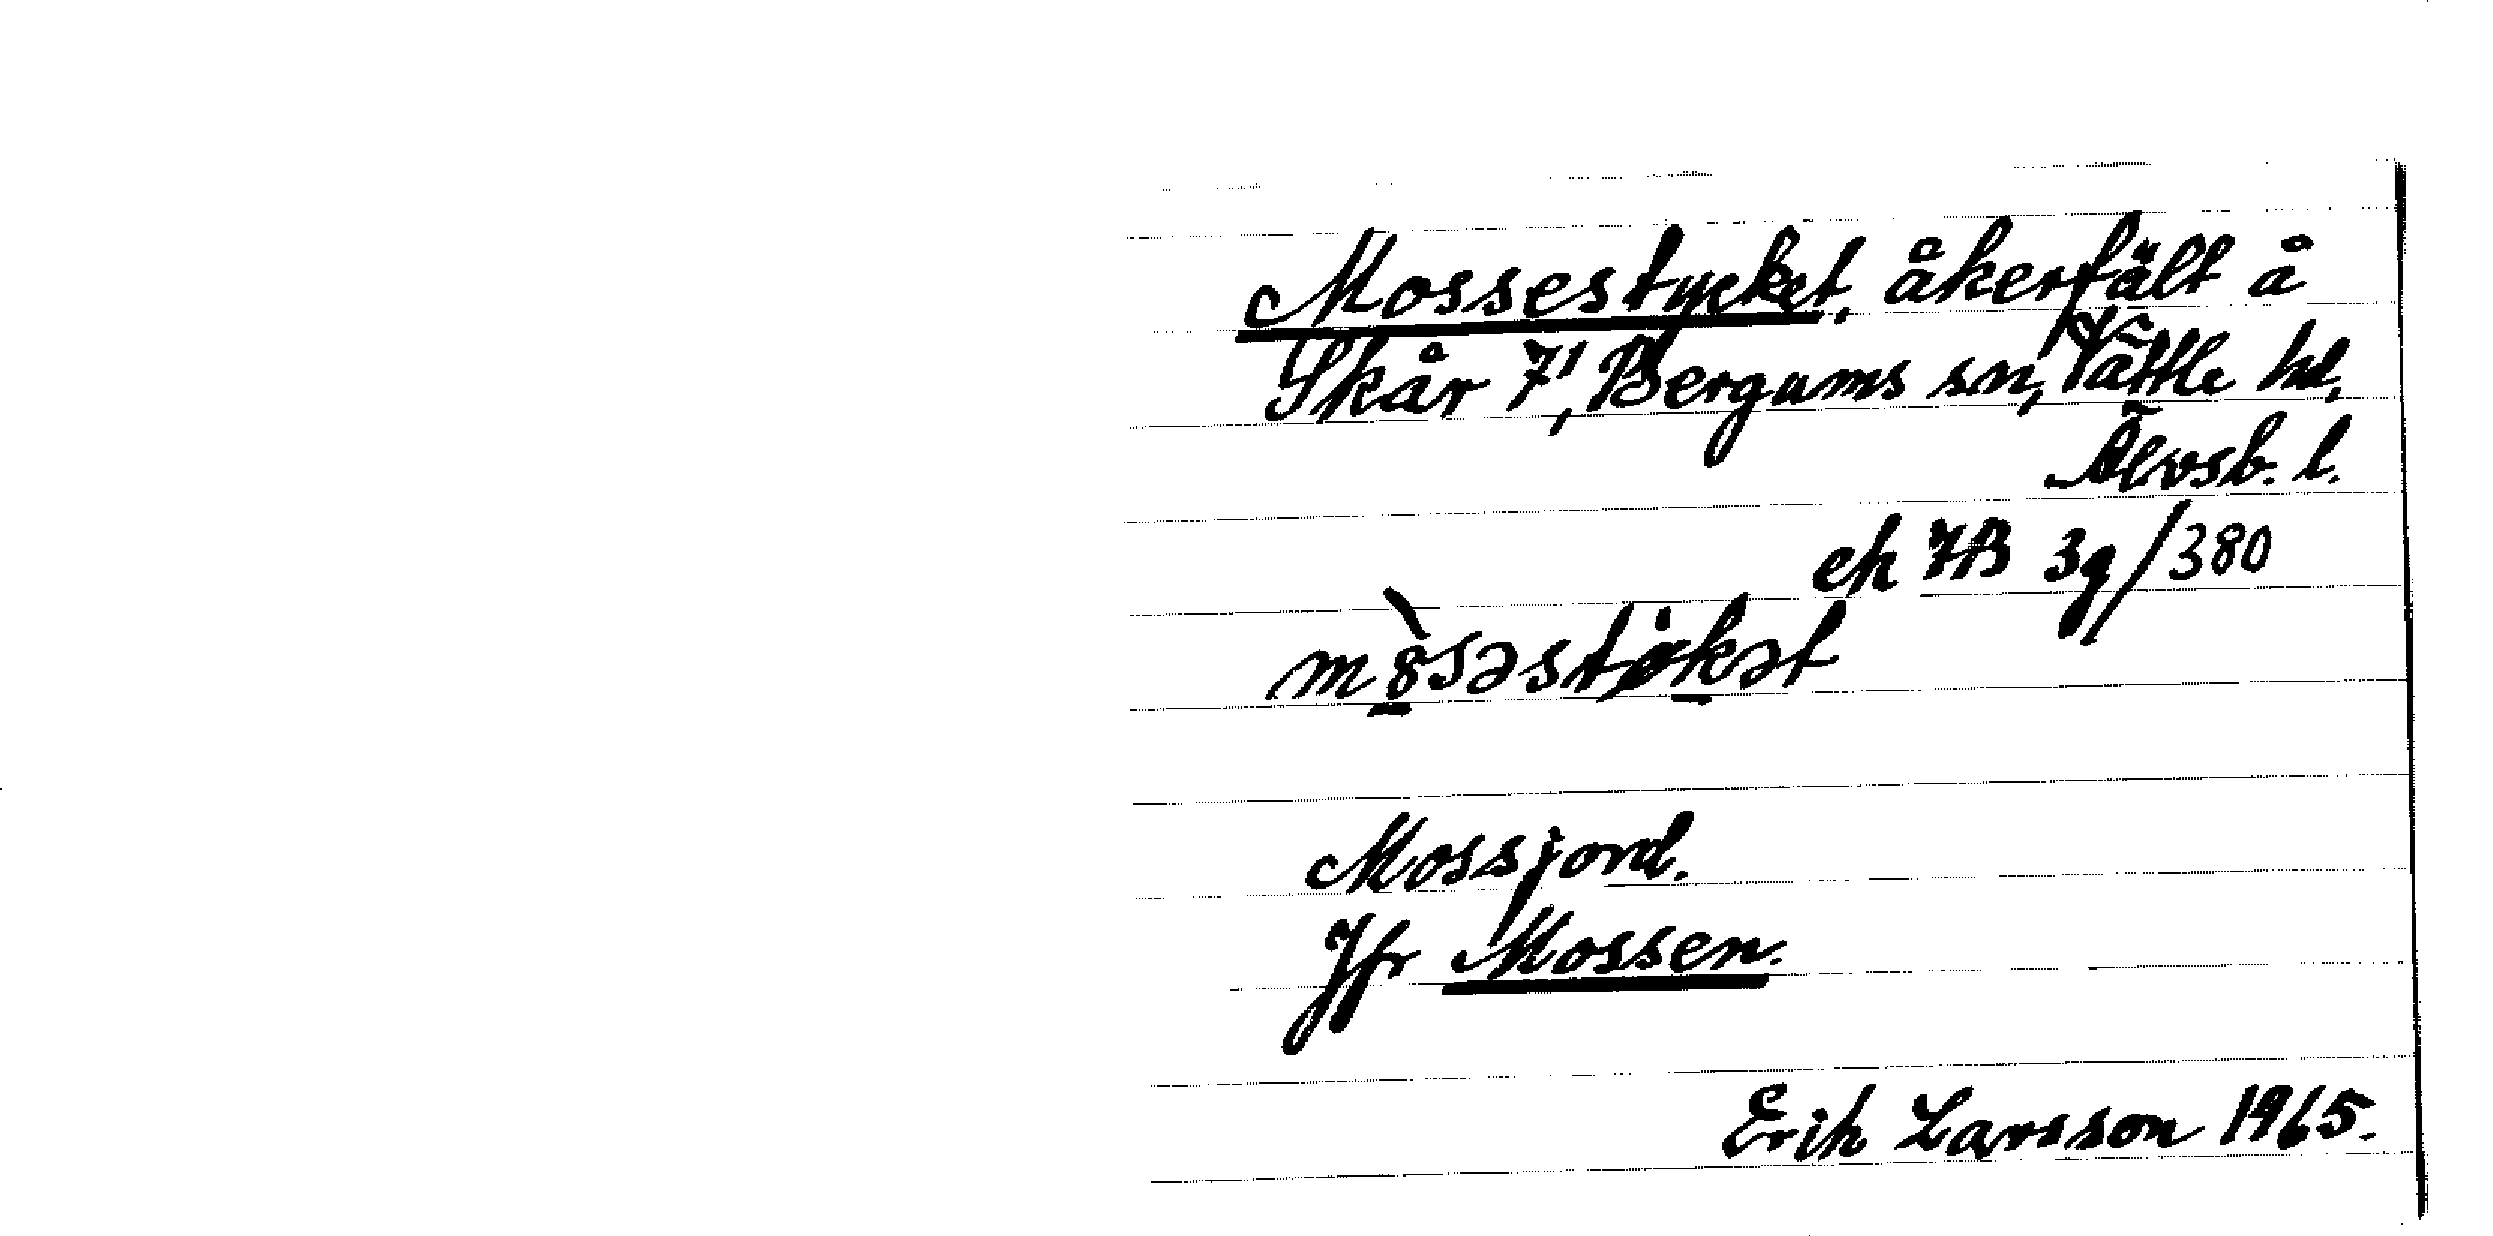 Mossestycket, åkerfält å
Skår 7¹, Bergums sn, Vättle hd,
Älvsb. l.
ek 7B 3g/380
Mossjord.
Jfr Mossen.
Erik Larsson 1965.